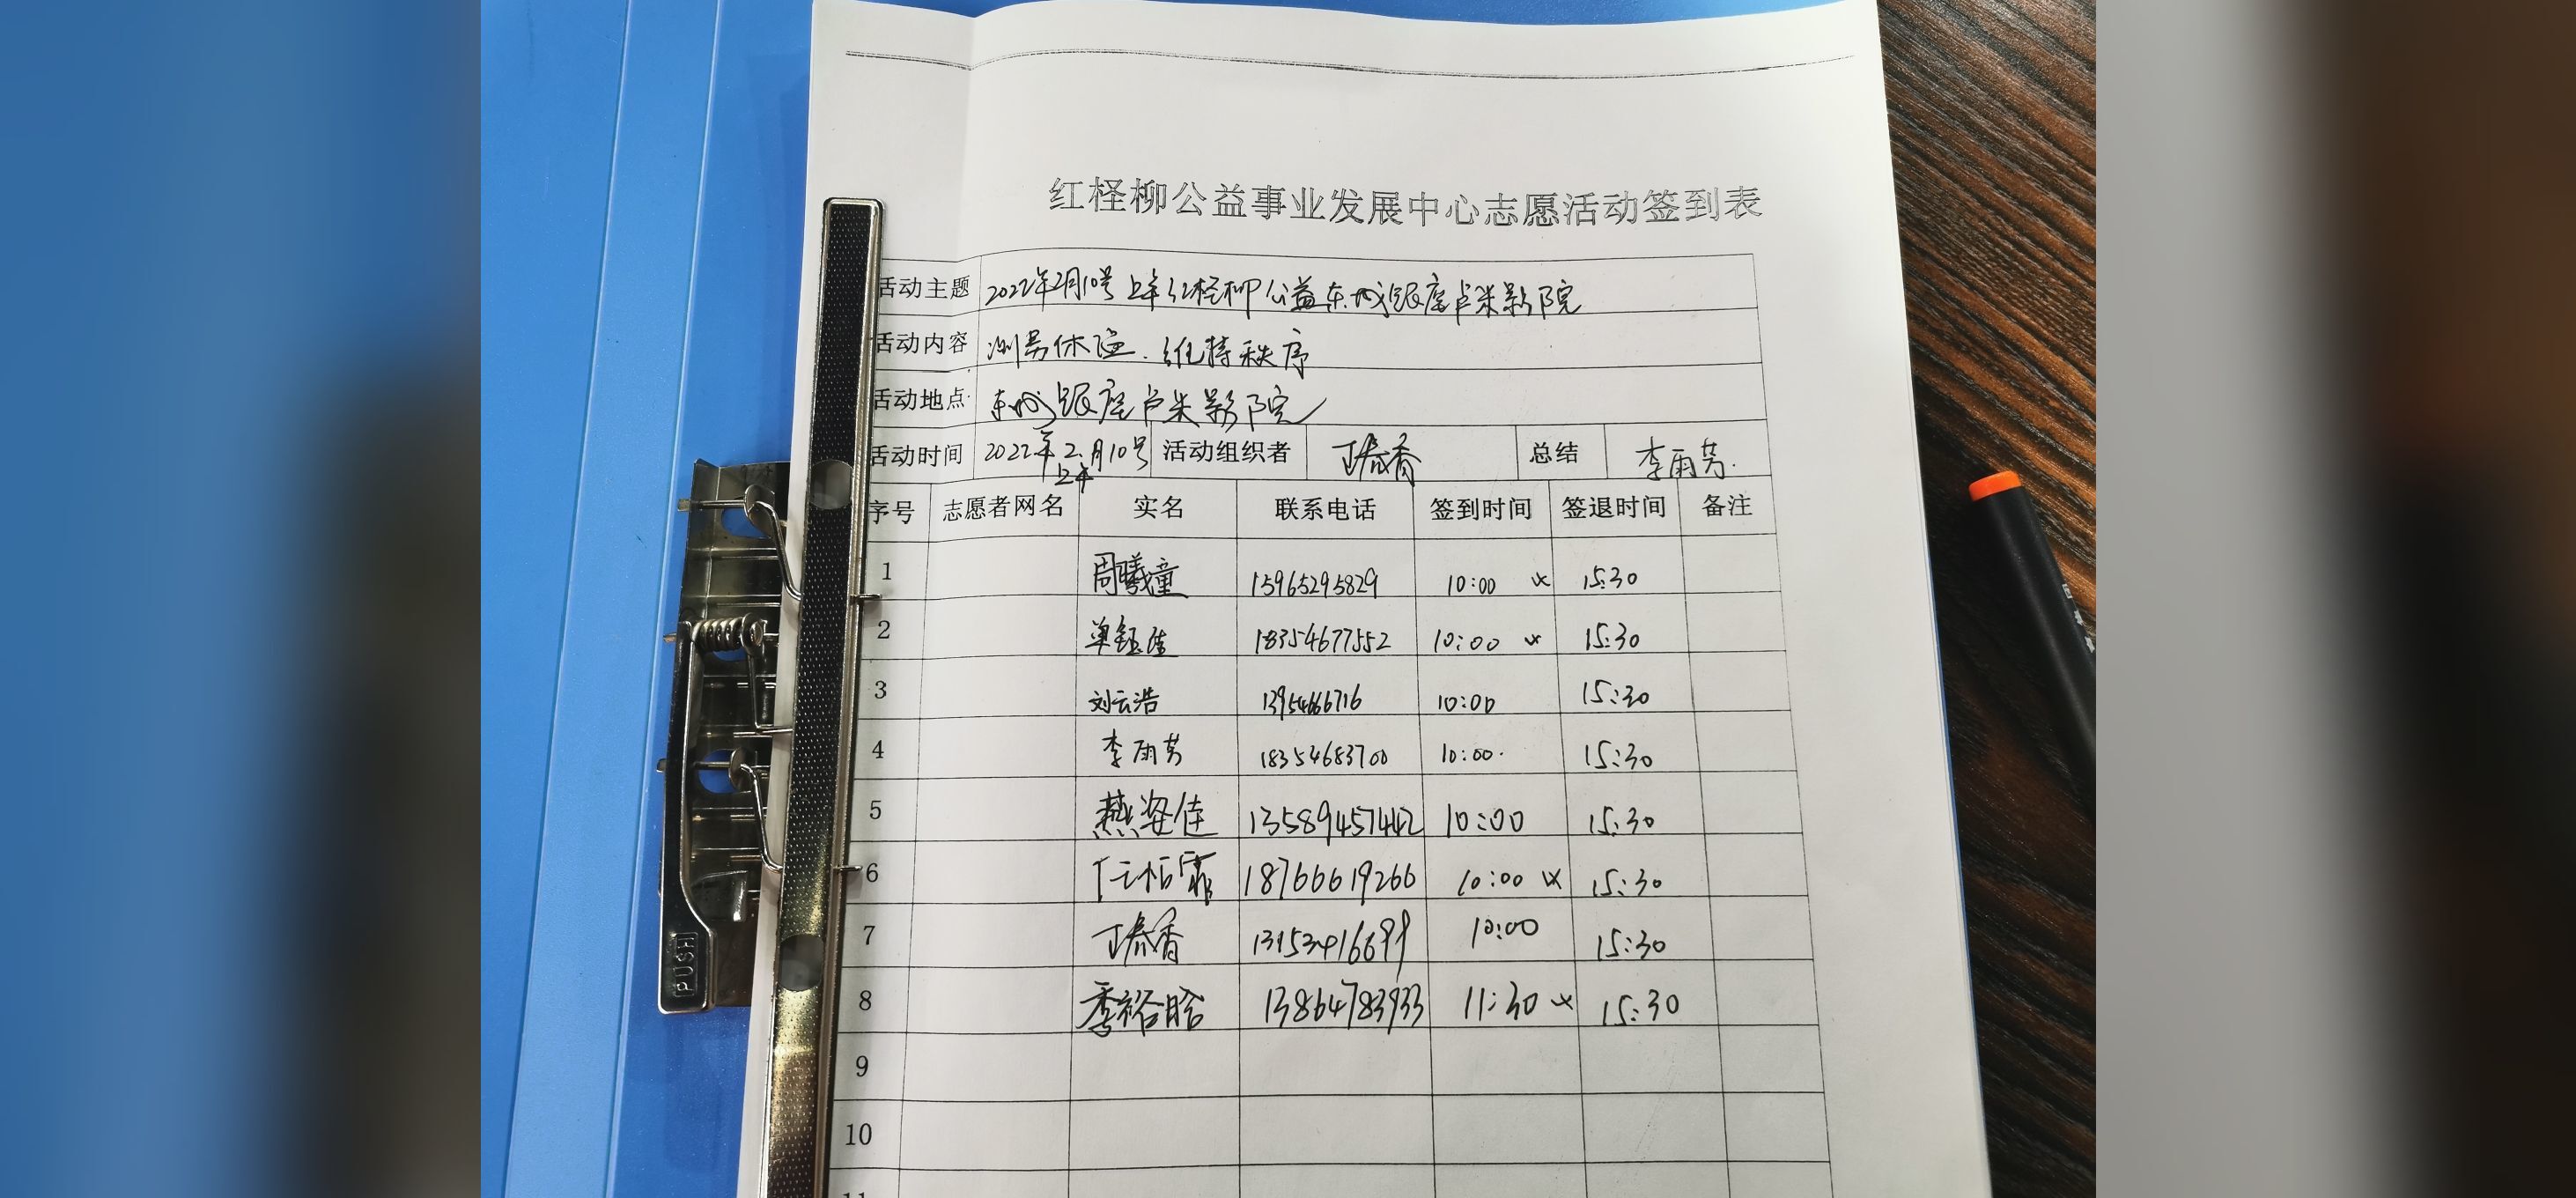 红柽柳公益事业发展中心志愿活动签到表
活动主题 2022年2月10号上午红柽柳公益东城银座卢米影院
活动内容 测号体温、维持秩序
活动地点 东城银座卢米影院
活动时间 2022年2月10号 上午 活动组织者 丁春香 总结 李雨芳
序号 志愿者网名 实名 联系电话 签到时间 签退时间 备注
1 周曦童 15965295829 10:00 15:30
2 单钰佳 18354677552 10:00 15:30
3 刘云浩 1395466716 10:00 15:30
4 李雨芳 18354683700 10:00 15:30
5 燕姿佳 13589457442 10:00 15:30
6 任栢霏 18766619266 10:00 15:30
7 丁春香 13153416699 10:00 15:30
8 季裕晗 13864783933 11:30 15:30
9
10
11
PUSH